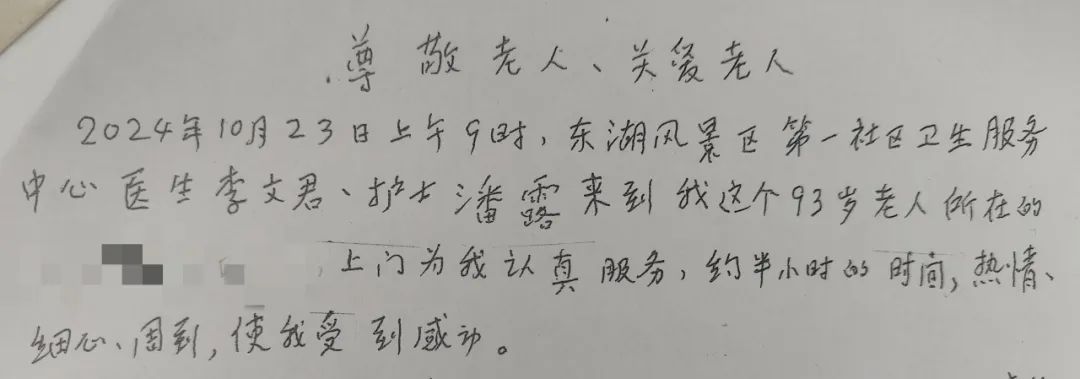 尊敬老人、关爱老人
2024年10月23日上午9时,东湖风景区第一社区卫生服务
中心医生李文君、护士潘露来到我这个93岁老人所在的
,上门为我认真服务,约半小时的时间,热情、
细心、周到,使我受到感动。